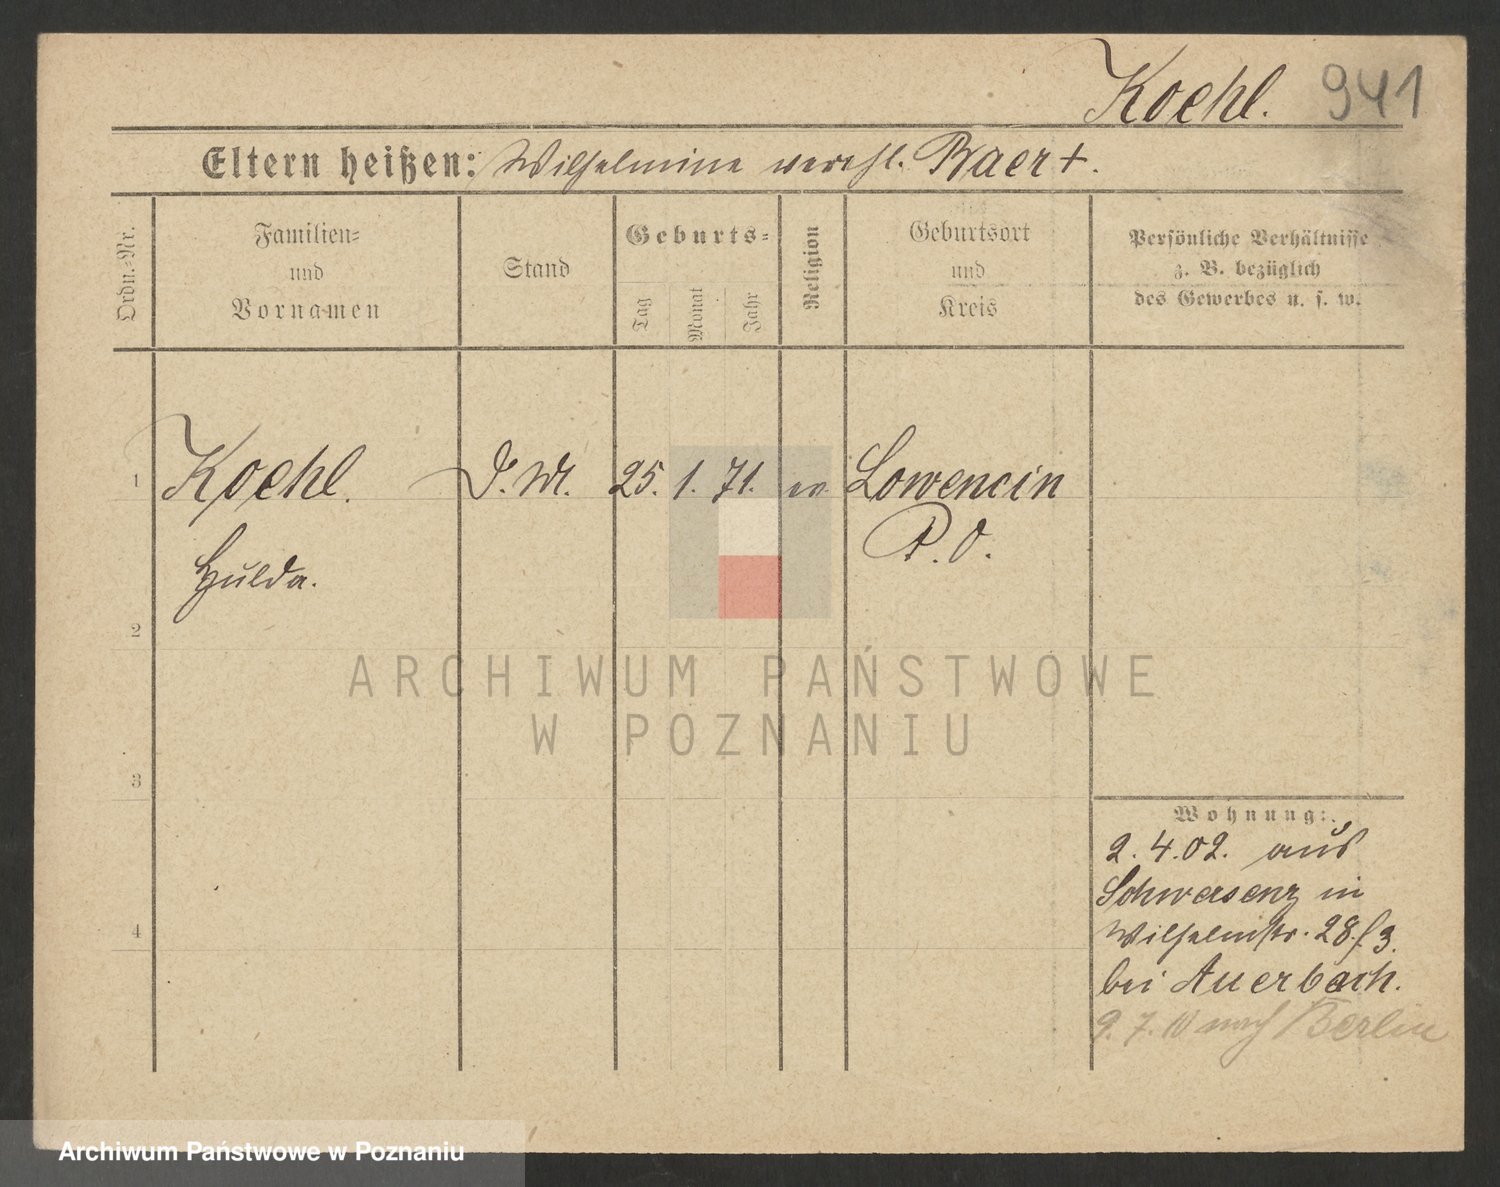 Koehl. 941
Eltern heißen: Wilhelmine verehl. Baer +.
Ordn.-Nr.
Familien-
und
Vornamen
Stand
Geburts-
Tag
Monat
Jahr
Religion
Geburtsort
und
Kreis
Persönliche Verhältnisse
z. B. bezüglich
des Gewerbes u. s. w.
1 Koehl. D.M. 25. 1. 71. ev. Lowencin
P. O.
Hulda.
2
3
4
Wohnung:
2. 4. 02. aus
Schwersenz in
Wilhelmstr. 28. f 3.
bei Auerbach.
9. 7. 10 nach Berlin
ARCHIWUM PAŃSTWOWE
W POZNANIU
Archiwum Państwowe w Poznaniu